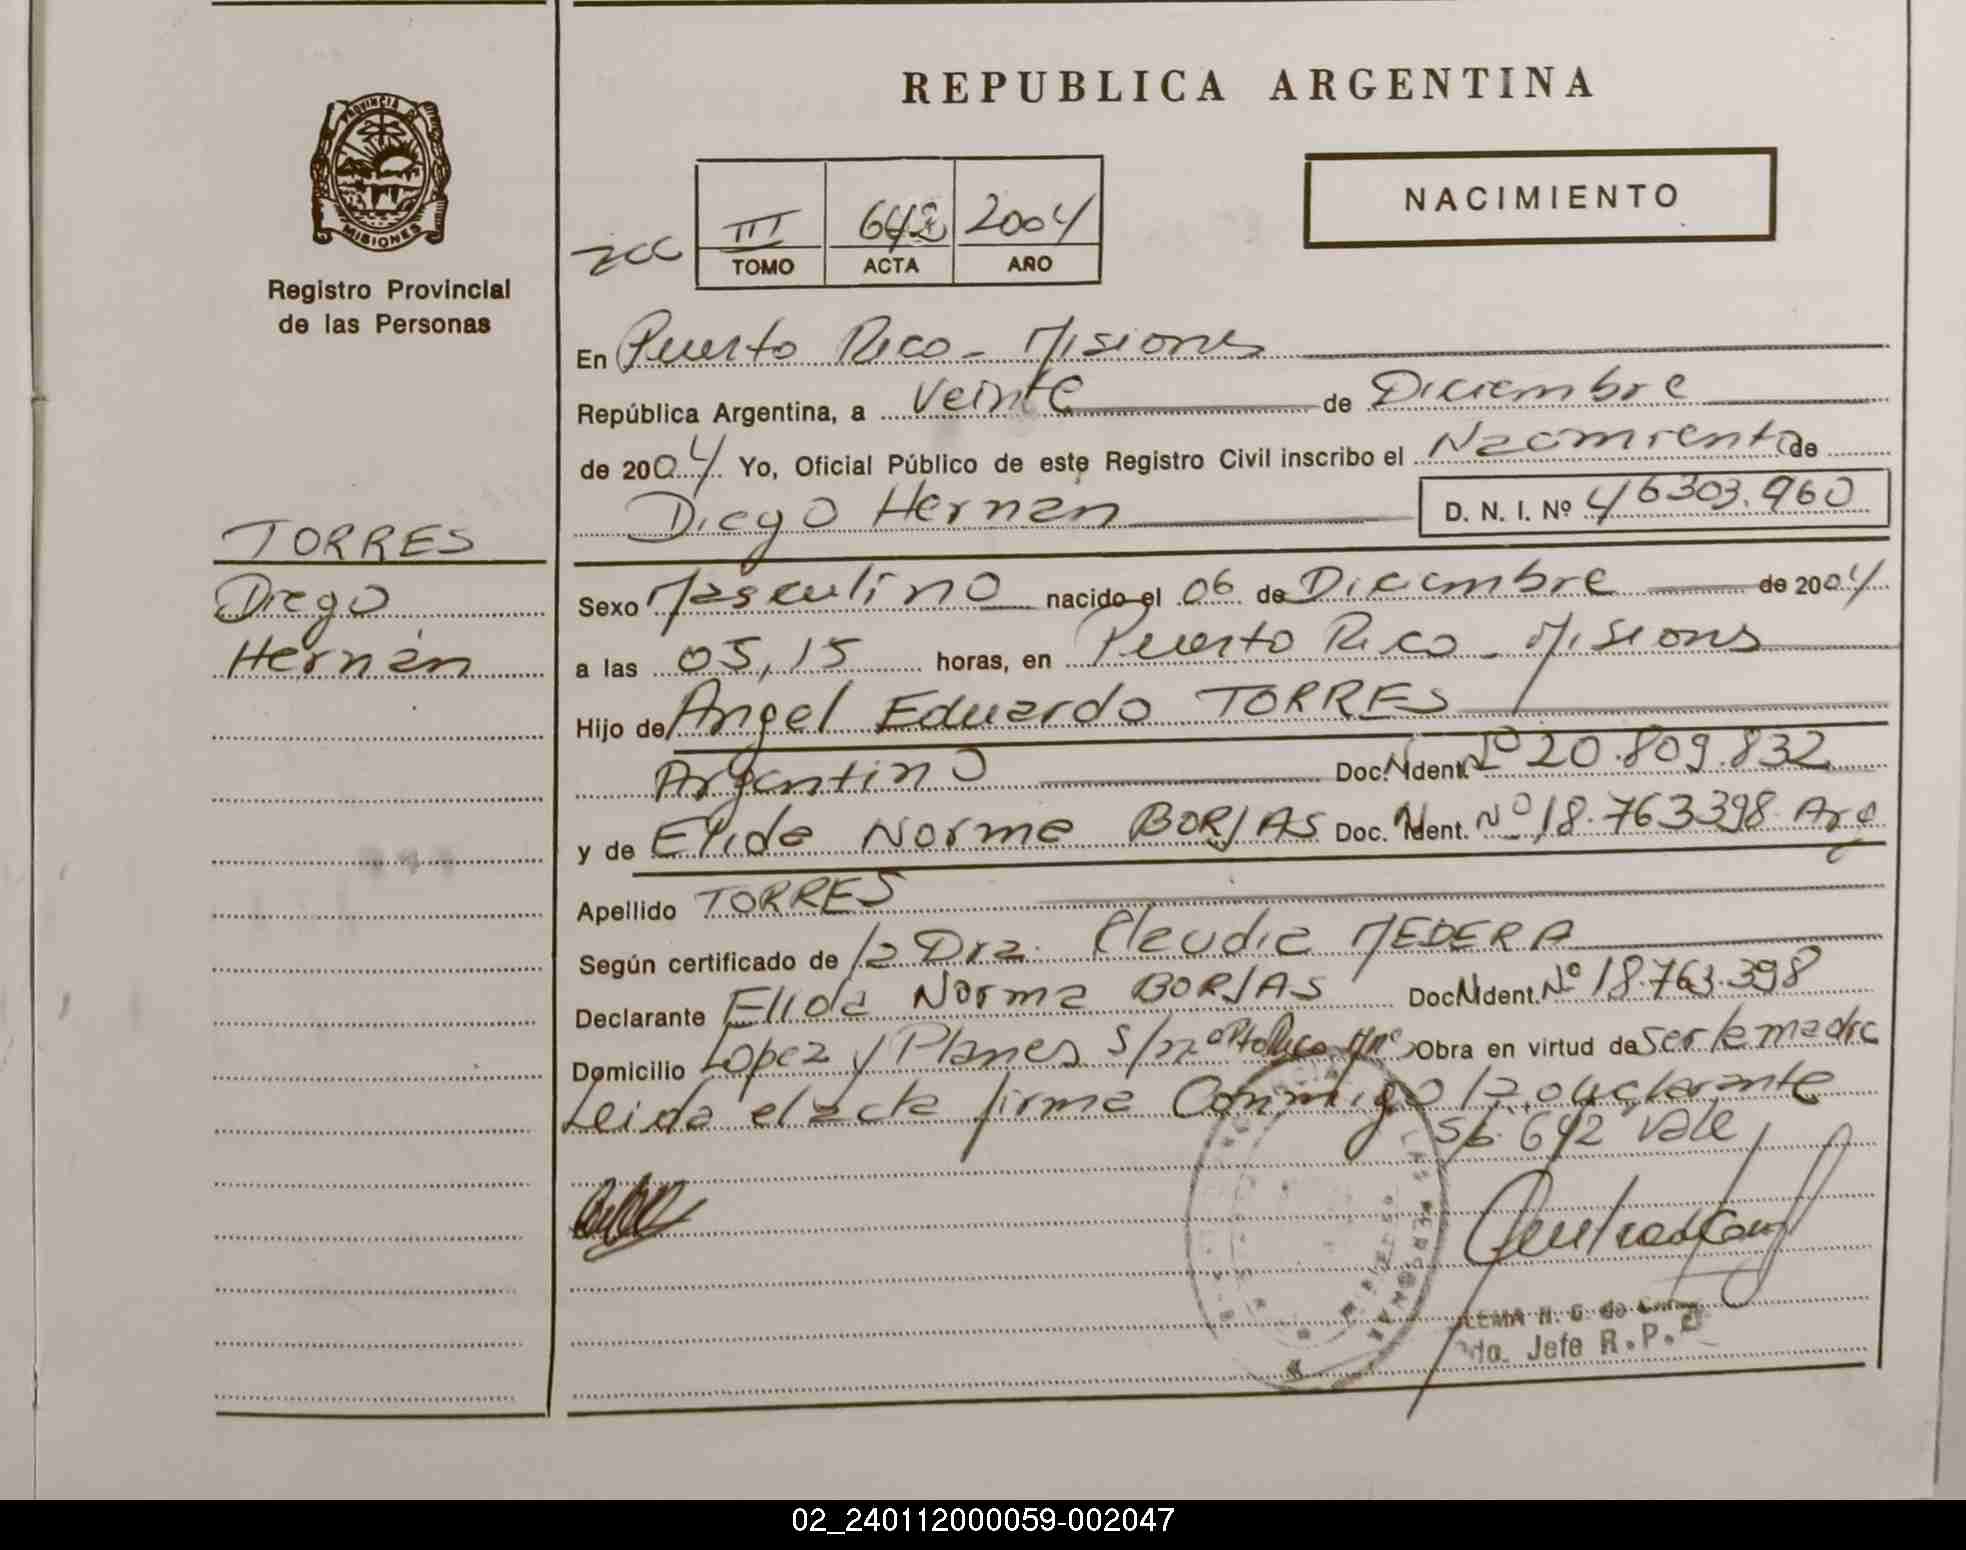 REPUBLICA ARGENTINA
PROVINCIA DE
MISIONES
Registro Provincial
de las Personas
NACIMIENTO
III 642 2004
TOMO ACTA AÑO
En Puerto Rico - Misiones
República Argentina, a Veinte de Diciembre
de 2004 Yo, Oficial Público de este Registro Civil inscribo el Nacimiento de
Diego Hernan D. N. I. Nº 46303.960
TORRES
Diego
Hernán
Sexo Masculino nacido el 06 de Diciembre de 2004
a las 05,15 horas, en Puerto Rico - Misiones
Hijo de Angel Eduardo TORRES
Argentino Doc. Ident. Nº 20.809.832
y de Elida Norma BORJAS Doc. Ident. Nº 18.763.398 Arg
Apellido TORRES
Según certificado de la Dra. Claudia MEDERA
Declarante Elida Norma BORJAS Doc. Ident. Nº 18.763.398
Domicilio Lopez y Planes S/nº Pto Rico Mnes Obra en virtud de ser la madre
Leida el acta firma Conmigo la declarante
S/b. 642 Vale
N. G. de
Jefe R.P.
02_240112000059-002047